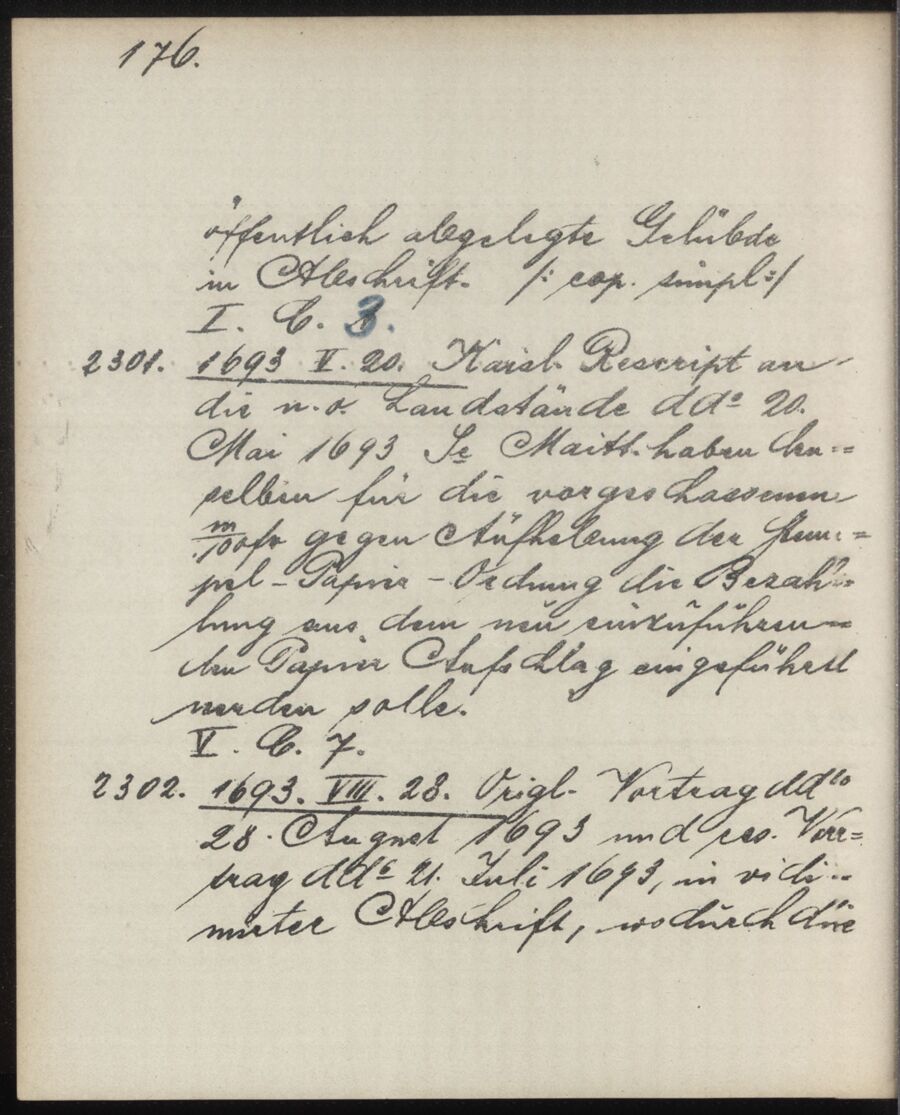 176.
öffentlich abgelegte Gelübde
in Abschrift. /: cop. simpl :/
I. C. 3.
2301. 1693 V. 20. Kaisl. Rescript an
die n.o. Landstände ddo 20.
Mai 1693 Se Maitt. haben den=
selben für die vorgeschossenen
m/100 fr gegen Aufhebung der Stem=
pel-Papier-Ordnung die Bezah=
lung aus dem neu einzuführen=
den Papier Aufschlag eingeführt
werden solle.
V. C. 7.
2302. 1693. VIII. 28. Origl. Vortrag ddto
28. August 1693 und res. Vor=
trag ddo 21. Juli 1693, in vidi=
mirter Abschrift, wodurch die